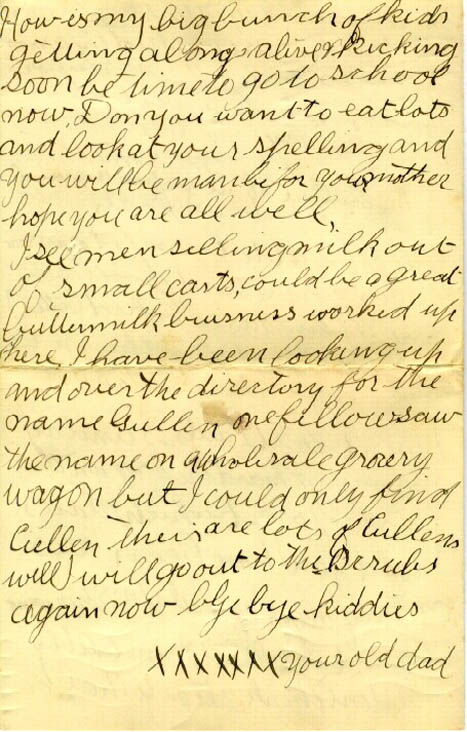 How is my big bunch of kids
getting along alive & kicking
soon be time to go to school
now, Don you want to eat lots
and look at your spelling and
you will be man for your mother
hope you are all well,
I see men selling milk out
of small carts, could be a great
buttermilk buisness worked up
here, I have been looking up
and over the directory for the
name Gullen one fellow saw
the name on a wholesale grocery
wagon but I could only find
Cullen their are lots of Cullens
well I will go out to the
again now bye bye kiddies
XXXXXXX your old dad